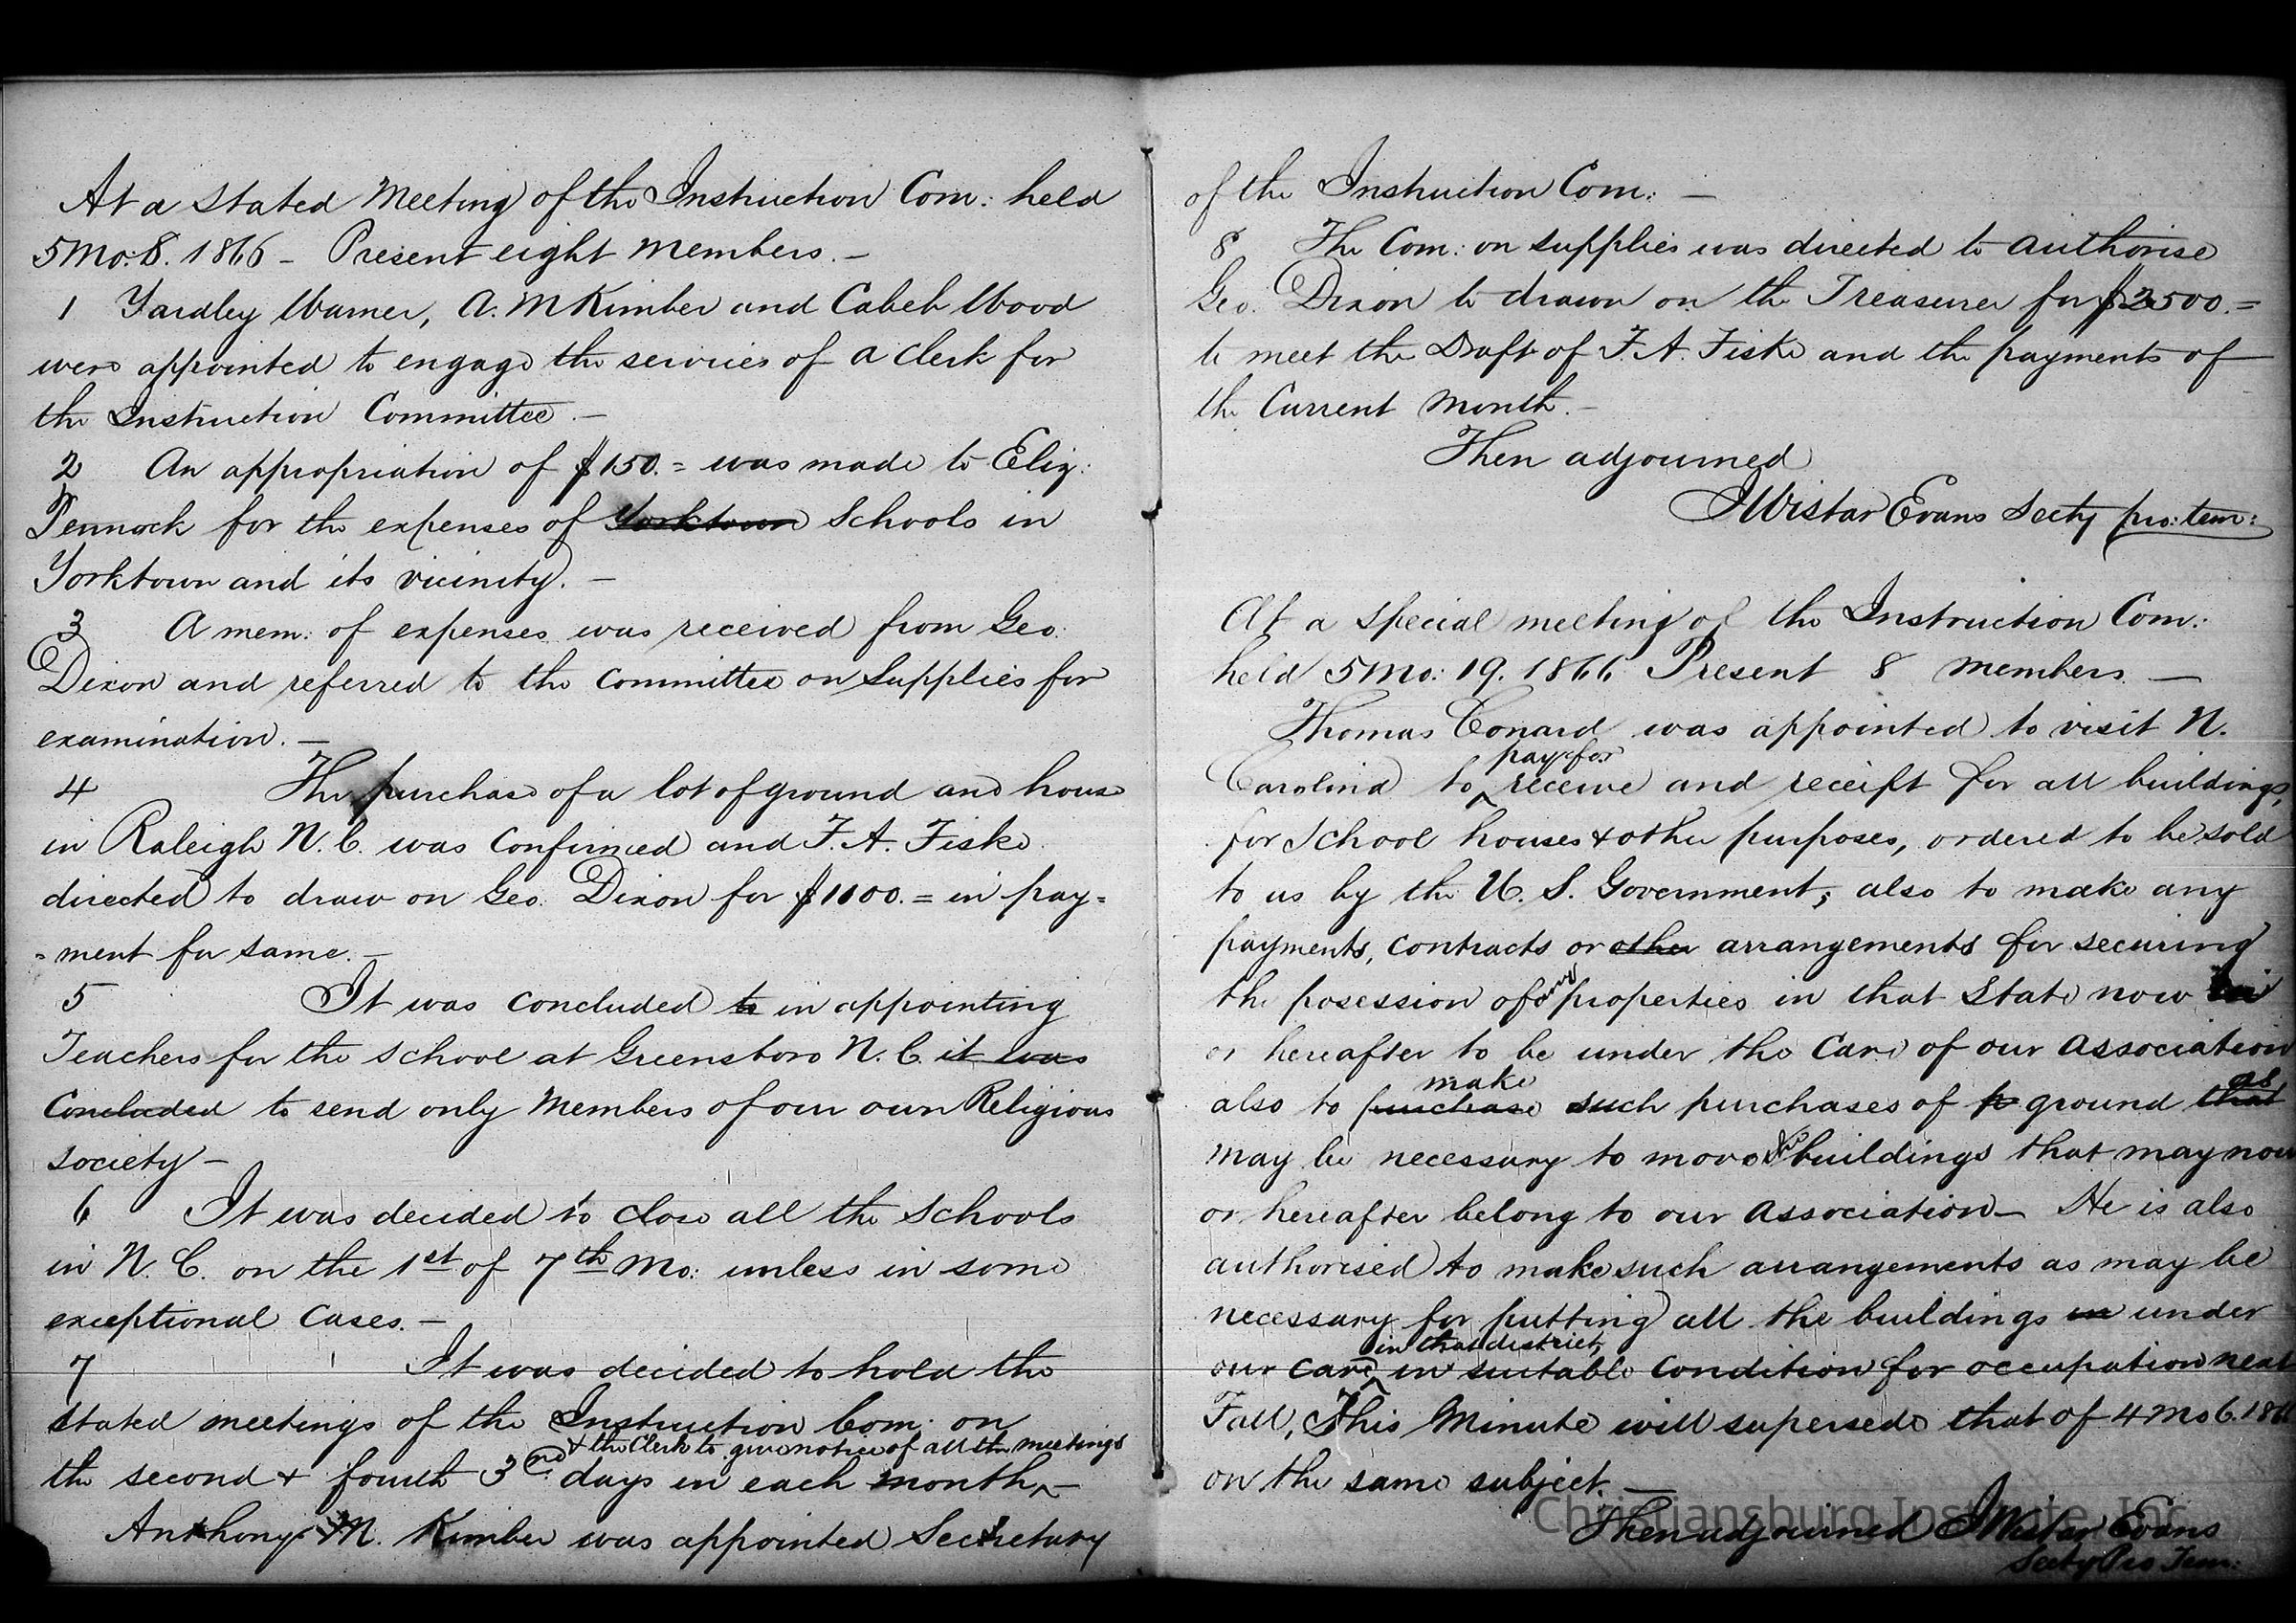 At a Stated Meeting of the Instruction Com: held
5 Mo: 8. 1866 – Present eight members. –
1 Yardley Warner, A. M Kimber and Cabeb Wood
were appointed to engage the services of a Clerk for
the Instruction Committee. –
2 An appropriation of $150.= was made to Eliz:
Pennock for the expenses of Yorktown Schools in
Yorktown and its vicinity. –
3 A mem: of expenses was received from Geo.
Dixon and referred to the Committee on Supplies for
examination. –
4 The purchase of a lot of ground and house
in Raleigh N. C. was Confirmed and F. A. Fiske
directed to draw on Geo. Dixon for $1100.= in pay=
=ment for same. –
5 It was concluded to in appointing
Teachers for the School at Greensboro N. C. it was
Concluded to send only Members of our own Religious
society –
6 It was decided to close all the Schools
in N. C. on the 1st of 7th Mo: unless in some
exceptional Cases. –
7 It was decided to hold the
stated meetings of the Instruction Com: on
& the Clerk to give notice of all the meetings
the second & fourth 3rd days in each month, –
Anthony M. Kimber was appointed Secretary
of the Instruction Com: –
8 The Com: on supplies was directed to authorise
Geo. Dixon to drawn on the Treasurer for $2500.=
to meet the Draft of F. A. Fiske and the payments of
the Current Month. –
Then adjourned
J Wistar Evans Secty pro: tem:
At a Special meeting of the Instruction Com:
held 5 Mo: 19. 1866 Present 8 members. –
Thomas Conard was appointed to visit N.
pay for
Carolina to receive and receipt for all buildings,
for School houses & other purposes, ordered to be sold
to us by the U. S. Government; also to make any
payments, contracts or other arrangements for securing
the posession of our properties in that State now in
or hereafter to be under the Care of our Association
make as
also to purchase such purchases of p ground that
may be necessary to move the buildings that may now
or hereafter belong to our Association – He is also
authorised to make such arrangements as may be
necessary for putting all the buildings in under
in that district,
our care in suitable Condition for occupation next
Fall, This Minute will supersede that of 4 Mo 6. 1866
on the same subject. –
Then adjourned J Wistar Evans
Secty Pro Tem:
Christiansburg Institute, Inc.